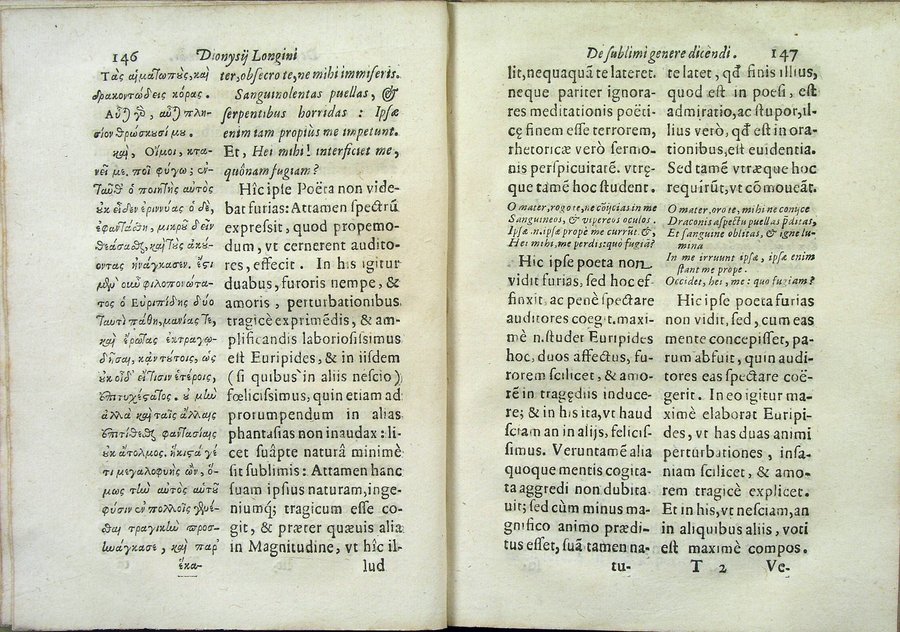 146 Dionysij Longini
Τὰς αἱματωποὺς, καὶ
δρακοντώδεις κόρας.
Αὗται γὸ, αὗται πλη-
σίον θρώσκουσί μου.
καὶ, Οἴμοι, κτα-
νεῖ με. ποῖ φύγω; ἐν-
ταῦθ' ὁ ποιητὴς αὐτὸς
οὐκ εἶδεν ἐριννύας ὁ δὲ,
ἐφαντάσθη, μικροῦ δεῖν
θεάσασθαι, καὶ τοὺς ἀκού-
οντας ἠνάγκασεν. ἔστι
μὲν οὖν φιλοπονώτα-
τος ὁ Εὐριπίδης δύο
ταυτὶ πάθη, μανίας τε,
καὶ ἔρωτας ἐκτραγῳ-
δῆσαι, κἀν τούτοις, ὡς
οὐκ οἶδ' εἴ τισιν ἑτέροις,
ἐπιτυχέστατος. οὐ μὴν
ἀλλὰ καὶ ταῖς ἄλλαις
ἐπιτίθεσθαι φαντασίαις
οὐκ ἄτολμος. ἥκιστά γέ
τι μεγαλοφυὴς ὢν, ὅ-
μως τὴν αὐτὸς αὑτοῦ
φύσιν ἐν πολλοῖς γενέ-
σθαι τραγικὴν προσ-
ηνάγκασε, καὶ παρ'
ἕκα-
ter, obsecro te, ne mihi immiseris.
Sanguinolentas puellas, &
serpentibus horridas : Ipsæ
enim tam propiùs me impetunt.
Et, Hei mihi! interficiet me,
quònam fugiam?
Hîc ipse Poëta non vide-
bat furias: Attamen spectrũ
expressit, quod propemo-
dum, vt cernerent audito-
res, effecit. In his igitur
duabus, furoris nempe, &
amoris, perturbationibus
tragicè exprimẽdis, & am-
plificandis laboriosissimus
est Euripides, & in iisdem
(si quibus in aliis nescio)
fœlicissimus, quin etiam ad
prorumpendum in alias
phantasias non inaudax: li-
cet suâpte naturâ minimè
sit sublimis: Attamen hanc
suam ipsius naturam, inge-
niumq; tragicum esse co-
git, & præter quæuis alia
in Magnitudine, vt hîc il-
lud
De sublimi genere dicendi. 147
lit, nequaquã te lateret.
neque pariter ignora-
res meditationis poëti-
cę finem esse terrorem,
rhetoricæ verò sermo-
nis perspicuitatẽ. vtrę-
que tamẽ hoc student.
O mater, rogo te, ne cõijcias in me
Sanguineos, & vipereos oculos.
Ipsæ. n. ipsæ prope me currũt. &,
Hei mihi, me perdis: quò fugiã?
Hic ipse poeta non
vidit furias, sed hoc ef-
finxit, ac penè spectare
auditores coegit. maxi-
mè n. studet Euripides
hoc, duos affectus, fu-
rorem scilicet, & amo-
rẽ in tragędiis induce-
re; & in his ita, vt haud
sciam an in alijs, felicis-
simus. Veruntamẽ alia
quoque mentis cogita-
ta aggredi non dubita
uit; sed cùm minus ma-
gnifico animo prædi-
tus esset, suã tamen na-
tu-
te latet, qđ finis illius,
quod est in poesi, est
admiratio, ac stupor, il-
lius verò, qđ est in ora-
tionibus, est euidentia.
Sed tamẽ vtræque hoc
requirũt, vt cõmoueãt.
O mater, oro te, mihi ne conijce
Draconis aspectu puellas pditas,
Et sanguine oblitas, & igne lu-
mina
In me irruunt ipsæ, ipsæ enim
stant me prope.
Occidet, hei, me: quo fugiam?
Hic ipse poeta furias
non vidit, sed, cum eas
mente concepisset, pa-
rum abfuit, quin audi-
tores eas spectare coë-
gerit. In eo igitur ma-
ximè elaborat Euripi-
des, vt has duas animi
perturbationes, insa-
niam scilicet, & amo-
rem tragicè explicet.
Et in his, vt nesciam, an
in aliquibus aliis, voti
est maximè compos.
T 2 Ve-